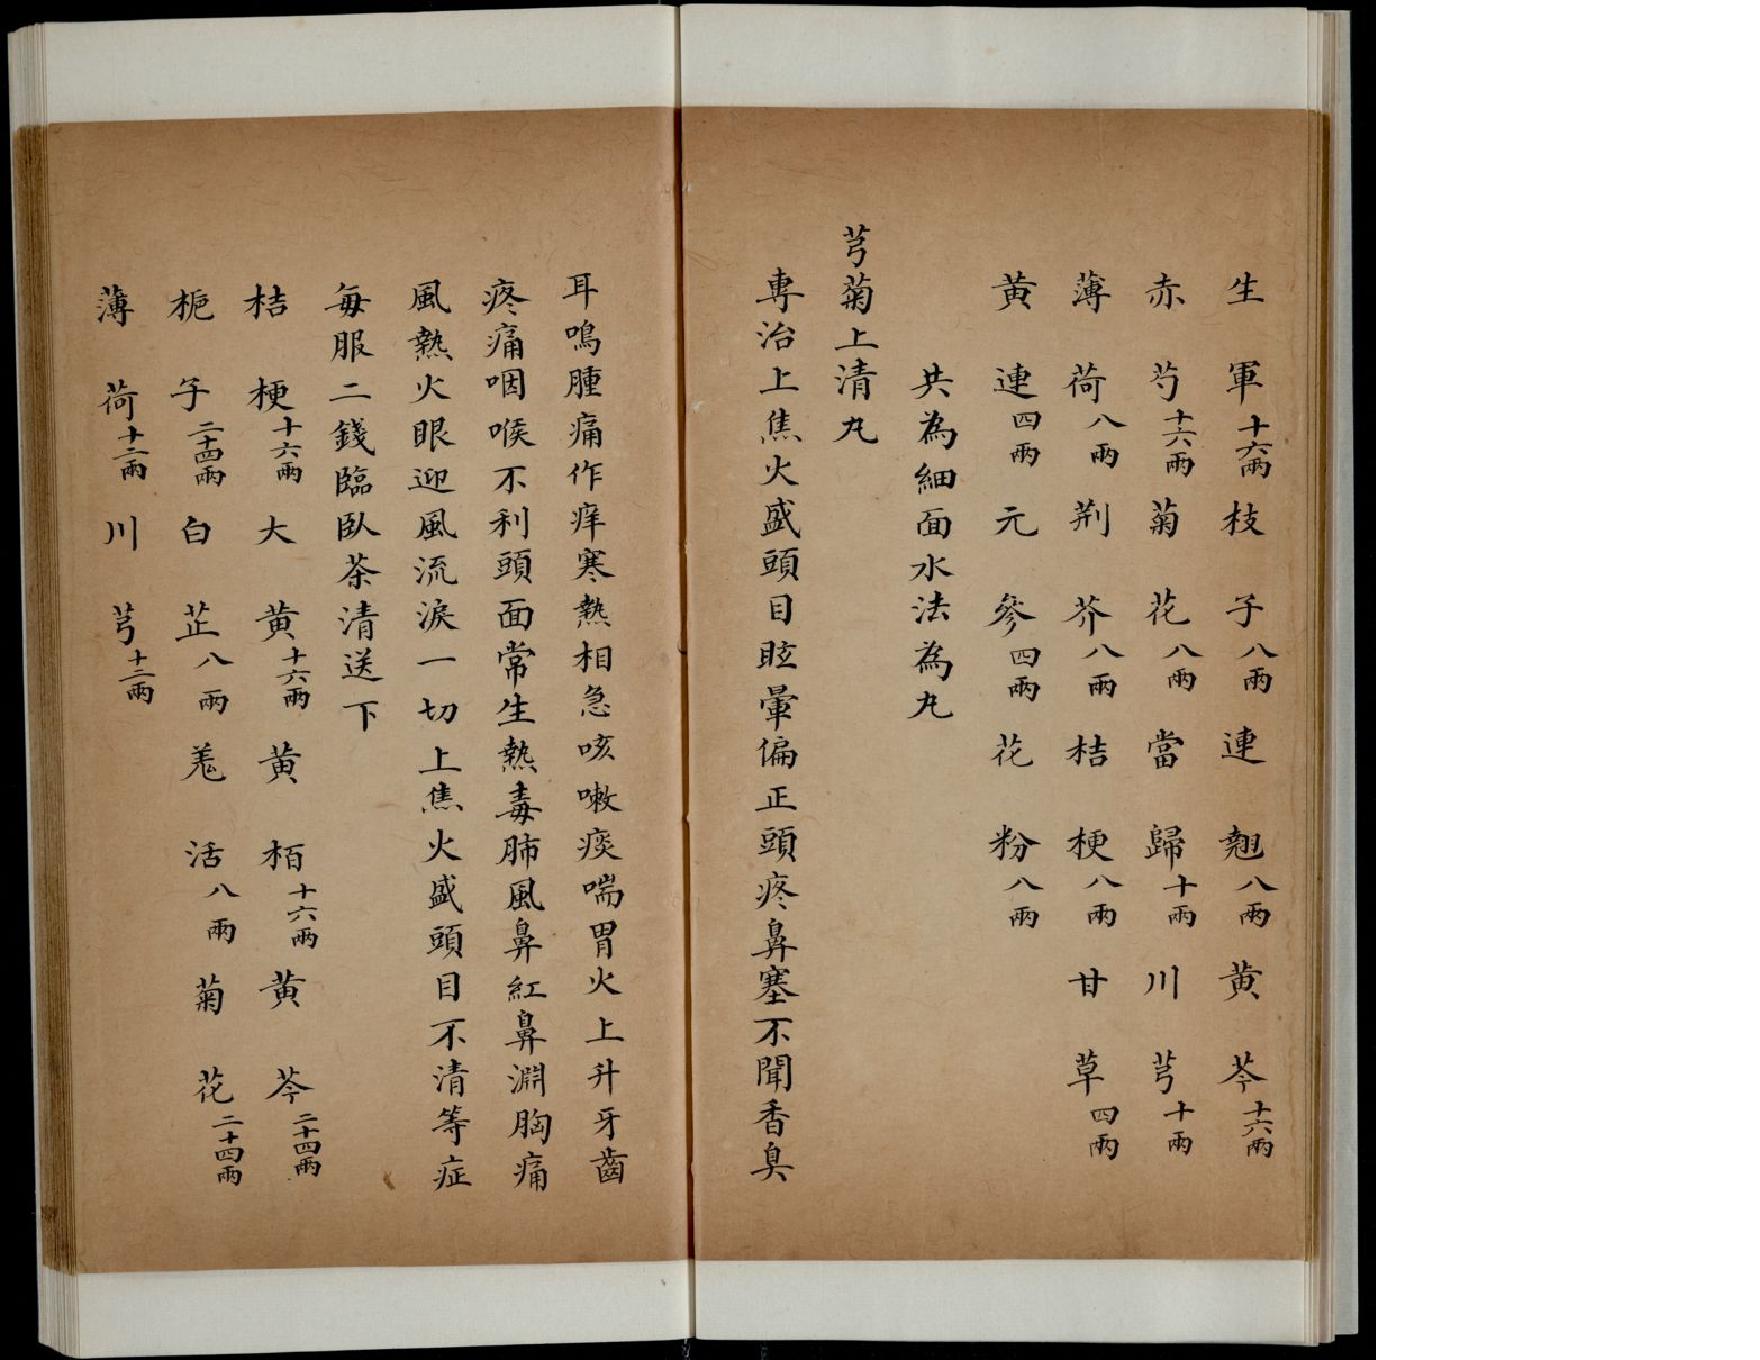 生軍十六兩枝子八兩連翹八兩黃芩十六兩
赤芍十六兩菊花八兩當歸十兩川芎十兩
薄荷八兩荆芥八兩桔梗八兩甘草四兩
黃連四兩元參四兩花粉八兩
共為細面水法為丸
芎菊上清丸
專治上焦火盛頭目眩暈偏正頭疼鼻塞不聞香臭
耳鳴腫痛作痒寒熱相急咳嗽痰喘胃火上升牙齒
疼痛咽喉不利頭面常生熱毒肺風鼻紅鼻淵胸痛
風熱火眼迎風流淚一切上焦火盛頭目不清等症
每服二錢臨臥茶清送下
桔梗十六兩大黃十六兩黃栢十六兩黃芩二十四兩
梔子二十四兩白芷八兩羗活八兩菊花二十四兩
薄荷十二兩川芎十二兩